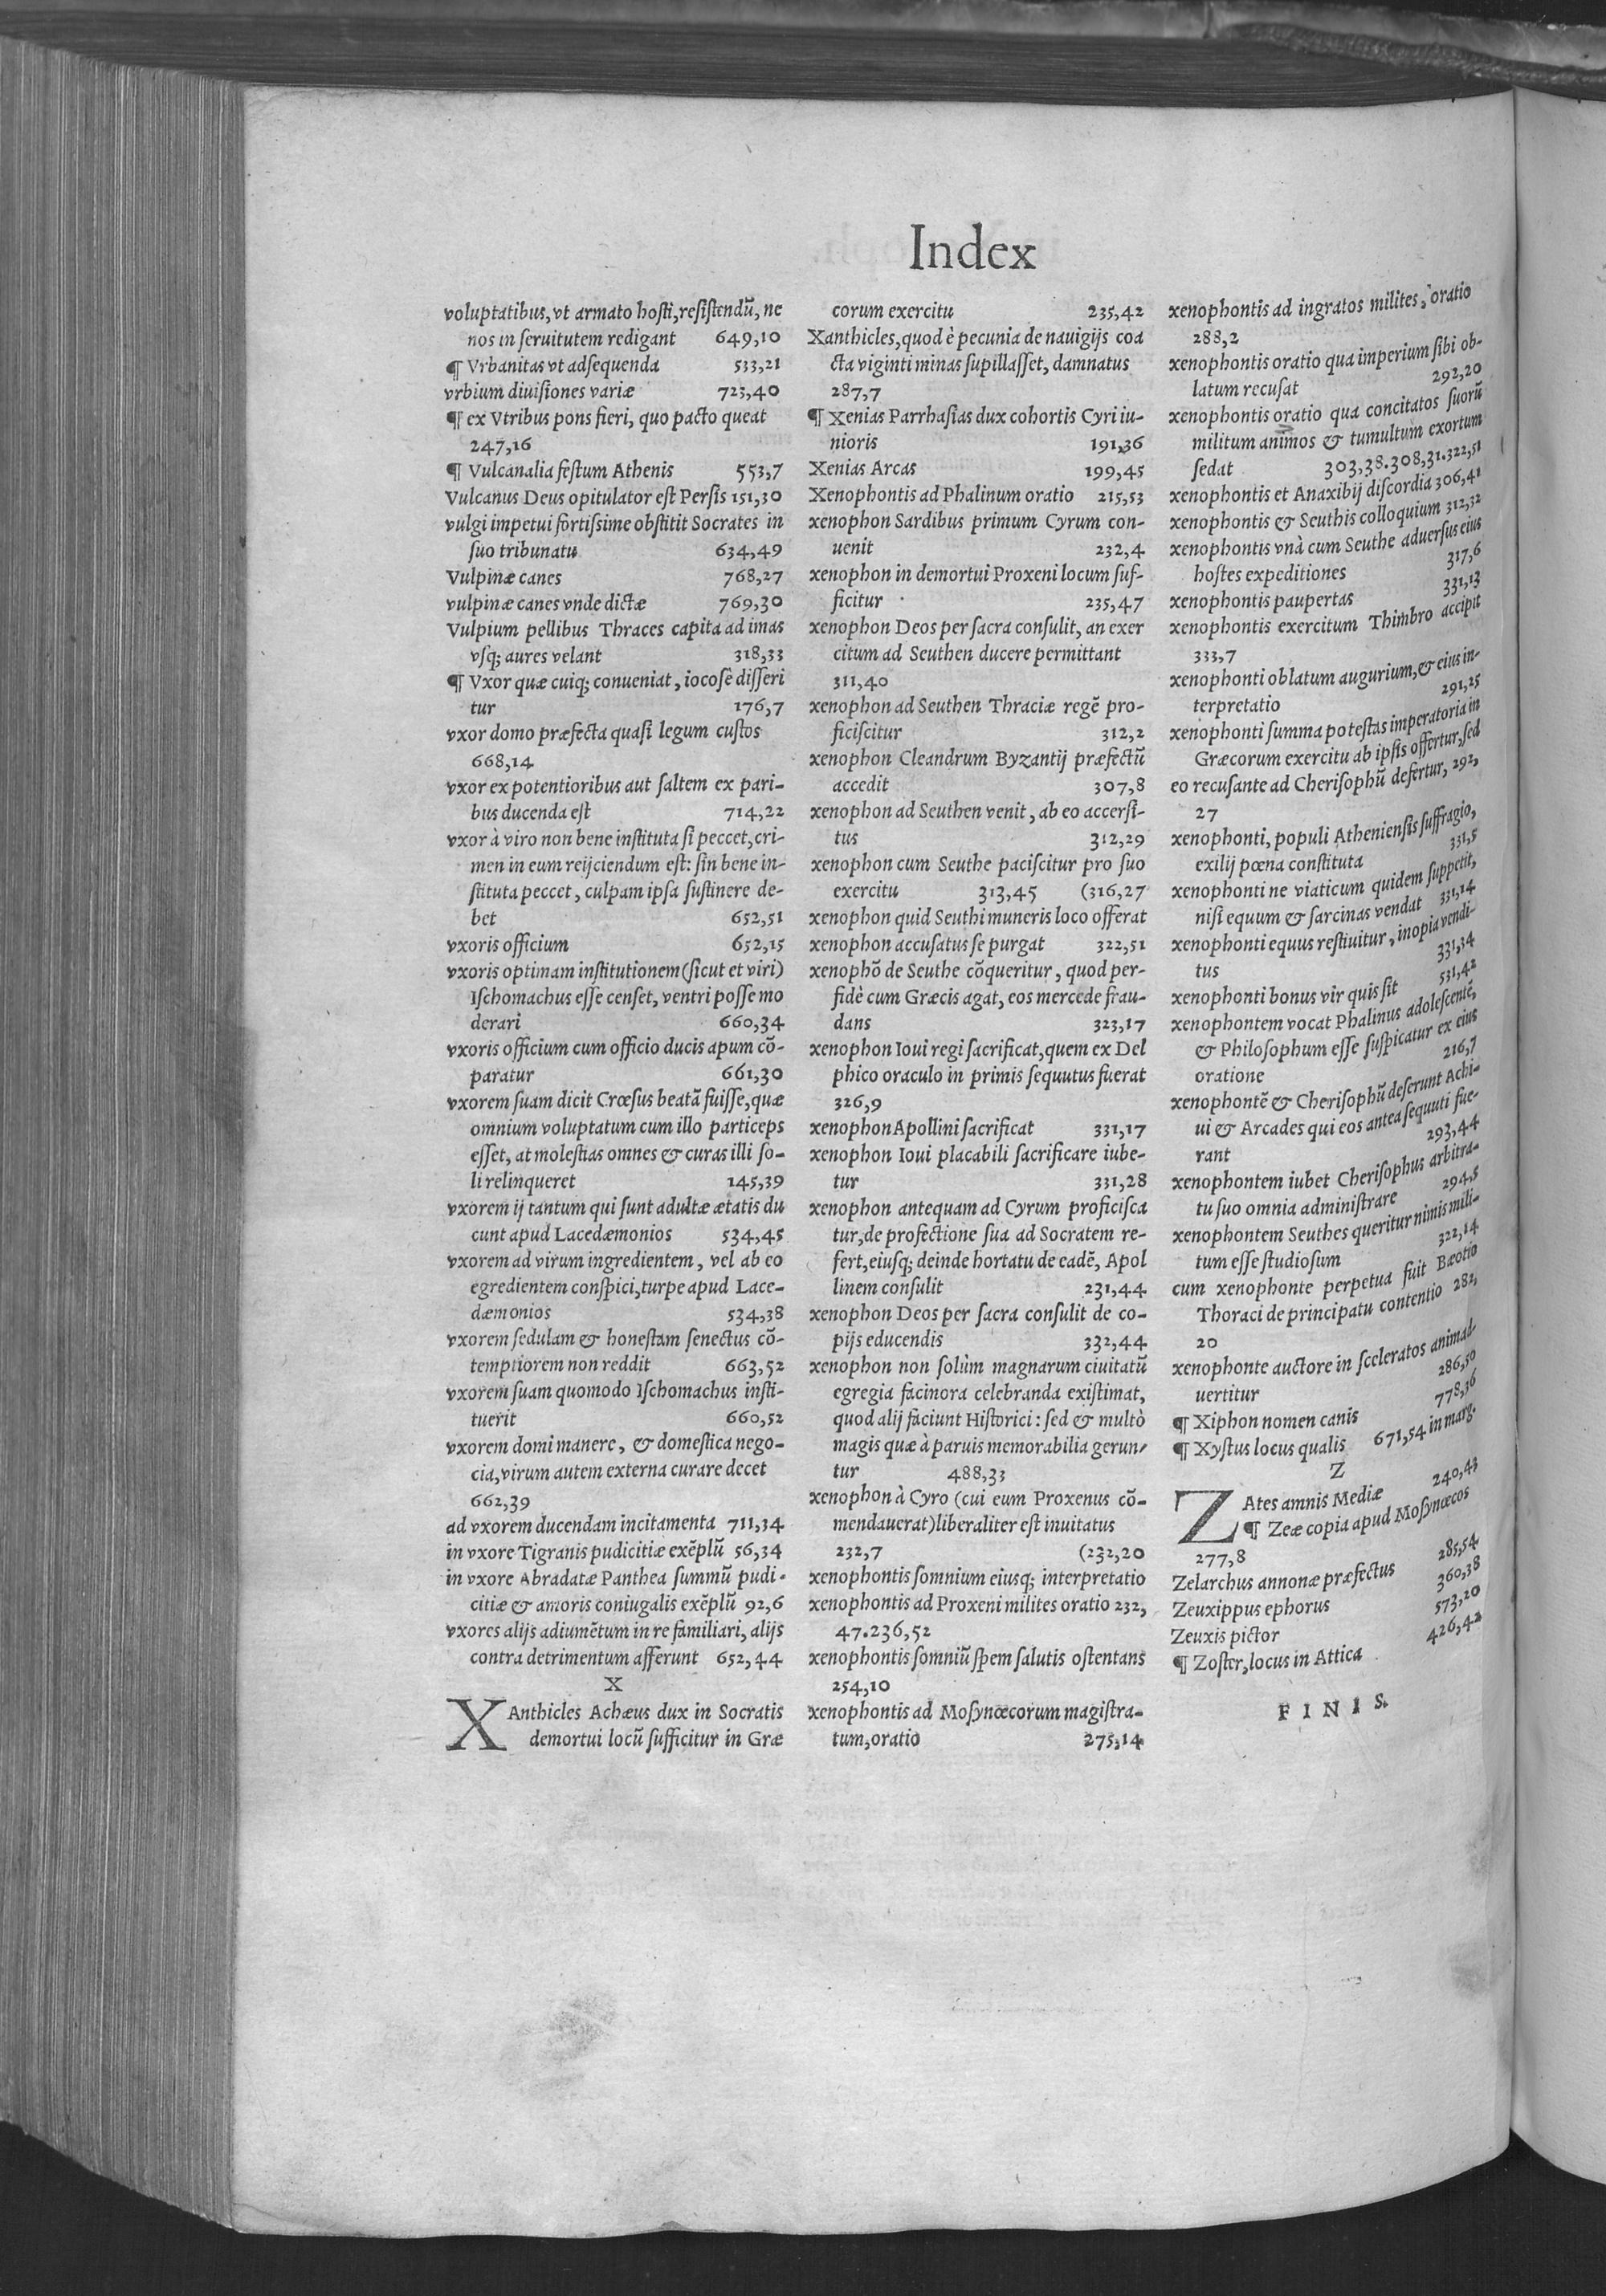 Index
voluptatibus, vt armato hoſti, reſiſtendũ, ne
nos in ſeruitutem redigant 649,10
¶ Vrbanitas vt adſequenda 533,21
vrbium diuiſiones variæ 723,40
¶ ex Vtribus pons fieri, quo pacto queat
247,16
¶ Vulcanalia feſtum Athenis 553,7
Vulcanus Deus opitulator eſt Perſis 151,30
vulgi impetui fortiſsime obſtitit Socrates in
ſuo tribunatu 634,49
Vulpinæ canes 768,27
vulpinæ canes vnde dictæ 769,30
Vulpium pellibus Thraces capita ad imas
vſq; aures velant 318,33
¶ Vxor quæ cuiq; conueniat, iocoſè diſſeri
tur 176,7
vxor domo præfecta quaſi legum cuſtos
668,14
vxor ex potentioribus aut ſaltem ex pari-
bus ducenda eſt 714,22
vxor à viro non bene inſtituta ſi peccet, cri-
men in eum reijciendum eſt: ſin bene in-
ſtituta peccet, culpam ipſa ſuſtinere de-
bet 652,51
vxoris officium 652,15
vxoris optimam inſtitutionem (ſicut et viri)
Iſchomachus eſſe cenſet, ventri poſſe mo
derari 660,34
vxoris officium cum officio ducis apum cõ-
paratur 661,30
vxorem ſuam dicit Crœſus beatã fuiſſe, quæ
omnium voluptatum cum illo particeps
eſſet, at moleſtias omnes & curas illi ſo-
li relinqueret 145,39
vxorem ij tantum qui ſunt adultæ ætatis du
cunt apud Lacedæmonios 534,45
vxorem ad virum ingredientem, vel ab eo
egredientem conſpici, turpe apud Lace-
dæmonios 534,38
vxorem ſedulam & honeſtam ſenectus cõ-
temptiorem non reddit 663,52
vxorem ſuam quomodo Iſchomachus inſti-
tuerit 660,52
vxorem domi manere, & domeſtica nego-
cia, virum autem externa curare decet
662,39
ad vxorem ducendam incitamenta 711,34
in vxore Tigranis pudicitiæ exẽplũ 56,34
in vxore Abradatæ Panthea ſummũ pudi-
citiæ & amoris coniugalis exẽplũ 92,6
vxores alijs adiumẽtum in re familiari, alijs
contra detrimentum afferunt 652,44
X
XAnthicles Achæus dux in Socratis
demortui locũ ſufficitur in Græ
corum exercitu 235,42
Xanthicles, quod è pecunia de nauigijs coa
cta viginti minas ſupillaſſet, damnatus
287,7
¶ Xenias Parrhaſias dux cohortis Cyri iu-
nioris 191,36
Xenias Arcas 199,45
Xenophontis ad Phalinum oratio 215,53
xenophon Sardibus primum Cyrum con-
uenit 232,4
xenophon in demortui Proxeni locum ſuf-
ficitur 235,47
xenophon Deos per ſacra conſulit, an exer
citum ad Seuthen ducere permittant
311,40
xenophon ad Seuthen Thraciæ regẽ pro-
ficiſcitur 312,2
xenophon Cleandrum Byzantij præfectũ
accedit 307,8
xenophon ad Seuthen venit, ab eo accerſi-
tus 312,29
xenophon cum Seuthe paciſcitur pro ſuo
exercitu 313,45 (316,27
xenophon quid Seuthi muneris loco offerat
xenophon accuſatus ſe purgat 322,51
xenophõ de Seuthe cõqueritur, quod per-
fidè cum Græcis agat, eos mercede frau-
dans 323,17
xenophon Ioui regi ſacrificat, quem ex Del
phico oraculo in primis ſequutus fuerat
326,9
xenophon Apollini ſacrificat 331,17
xenophon Ioui placabili ſacrificare iube-
tur 331,28
xenophon antequam ad Cyrum proficiſca
tur, de profectione ſua ad Socratem re-
fert, eiuſq; deinde hortatu de eadẽ, Apol
linem conſulit 231,44
xenophon Deos per ſacra conſulit de co-
pijs educendis 332,44
xenophon non ſolùm magnarum ciuitatũ
egregia facinora celebranda exiſtimat,
quod alij faciunt Hiſtorici: ſed & multò
magis quæ à paruis memorabilia gerun-
tur 488,33
xenophon à Cyro (cui eum Proxenus cõ-
mendauerat) liberaliter eſt inuitatus
232,7 (232,20
xenophontis ſomnium eiusq; interpretatio
xenophontis ad Proxeni milites oratio 232,
47.236,52
xenophontis ſomniũ ſpem ſalutis oſtentans
254,10
xenophontis ad Moſynœcorum magiſtra-
tum, oratio 275,14
xenophontis ad ingratos milites, oratio
288,2
xenophontis oratio qua imperium ſibi ob-
latum recuſat 292,20
xenophontis oratio qua concitatos ſuorũ
militum animos & tumultum exortum
ſedat 303,38.308,31.322,51
xenophontis et Anaxibij diſcordia 306,41
xenophontis & Seuthis colloquium 312,32
xenophontis vnà cum Seuthe aduerſus eius
hoſtes expeditiones 317,6
xenophontis paupertas 331,13
xenophontis exercitum Thimbro accipit
333,7
xenophonti oblatum augurium, & eius in-
terpretatio 291,25
xenophonti ſumma poteſtas imperatoria in
Græcorum exercitu ab ipſis offertur, ſed
eo recuſante ad Cheriſophũ defertur, 292,
27
xenophonti, populi Athenienſis ſuffragio,
exilij pœna conſtituta 331,5
xenophonti ne viaticum quidem ſuppetit,
niſi equum & ſarcinas vendat 331,14
xenophonti equus reſtiuitur, inopia vendi-
tus 331,34
xenophonti bonus vir quis ſit 531,42
xenophontem vocat Phalinus adoleſcentẽ,
& Philoſophum eſſe ſuſpicatur ex eius
oratione 216,7
xenophontẽ & Cheriſophũ deſerunt Achi-
ui & Arcades qui eos antea ſequuti fue-
rant 293,44
xenophontem iubet Cheriſophus arbitra-
tu ſuo omnia adminiſtrare 294,5
xenophontem Seuthes queritur nimis mili-
tum eſſe ſtudioſum 322,14
cum xenophonte perpetua fuit Bæotio
Thoraci de principatu contentio 282,
20
xenophonte auctore in ſceleratos animad-
uertitur 286,50
¶ Xiphon nomen canis 778,36
¶ Xyſtus locus qualis 671,54 in marg.
Z
ZAtes amnis Mediæ 240,43
¶ Zeæ copia apud Moſynœcos
277,8
Zelarchus annonæ præfectus 285,54
Zeuxippus ephorus 360,38
Zeuxis pictor 573,20
¶ Zoſter, locus in Attica 426,42
FINIS.